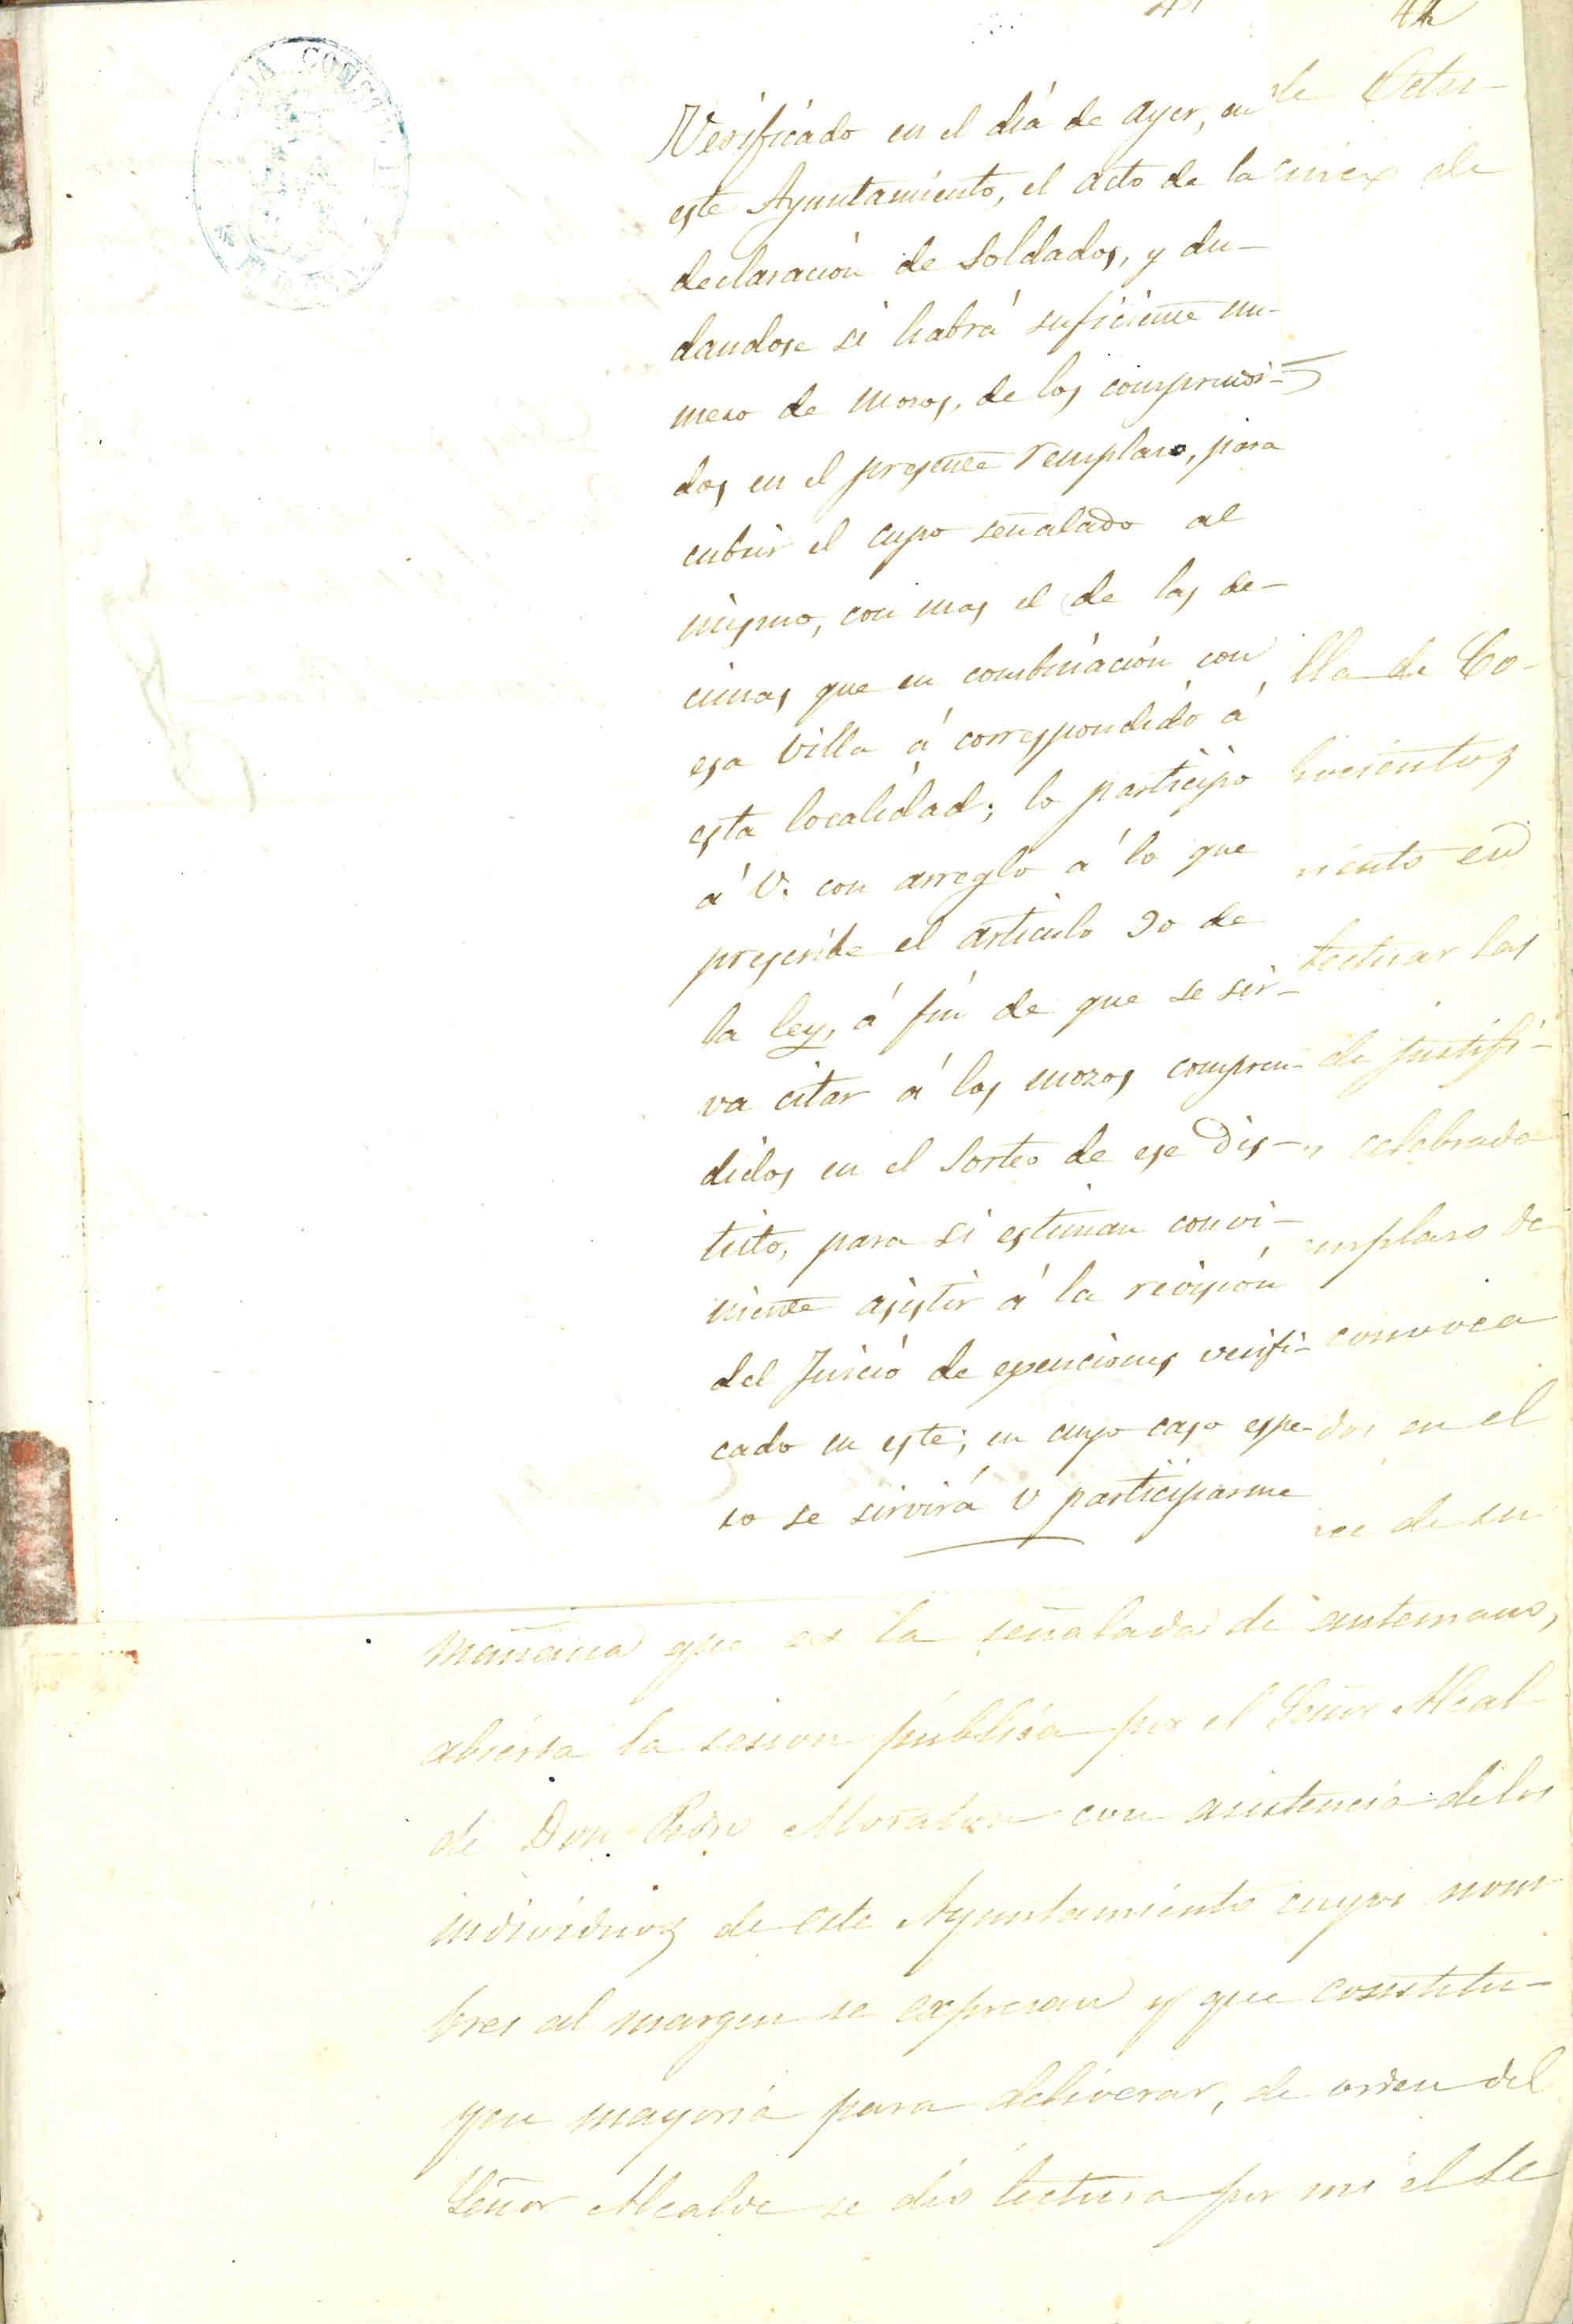 42
Verificado en el dia de ayer, en
este Ayuntamiento, el acto de la
declaración de Soldados, y du-
dandose si habrá suficiente nu-
mero de mozos, de los comprendi-
dos en el presente remplazo, para
cubrir el cupo señalado al
mismo, con mas el de las de-
cimas que en combinación con
esa Villa á correspondido á
esta localidad; lo participo
á V. con arreglo á lo que
prescribe el articulo 90 de
la ley, á fin de que se sir-
va citar á los mozos compren-
didos en el Sorteo de ese Dis-
trito, para si estiman convi-
niente asistir á la revisión
del Juicio de exenciones verifi-
cado en este; en cuyo caso espe-
ro se sirvirá V participarme
de Octu-
de
lla de Co-
hocientos
miento en
fectuar las
de justifi-
celebrado
emplazo de
convoca
dos en el
de su
mañana que es la señalada de antemano,
abierta la sesion pública por el Señor Alcal-
de Don Pedro con asistencia de los
individuos de este Ayuntamiento cuyos nom
bres al margen se expresan y que constitu-
yen mayoría para deliverar, de orden del
Señor Alcalde se dió lectura por mi el Se